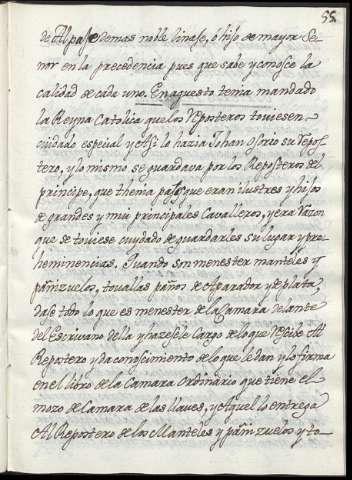 55.
de Al paje demas noble linaje, o hijo de mayor Se-
ñor en la precedencia pues que sabe y conosce la
calidad de cada uno. En aquesto tenia mandado
la Reyna Catolica que los Reposteros toviesen
cuidado especial y Assi lo hazia Johan Osorio su Repos-
tero, y lo mismo se guardava por los Reposteros del
principe, que thenia pajes que eran ilustres y hijos
de grandes y mui principales Cavalleros, y era razon
que se toviese cuydado de guardarles su lugar y pre-
heminencias. Quando son menester manteles y
pañizuelos, touallas paños de Aparador y de plata,
dase todo lo que es menester de la Camara delante
del Escrivano della y hazesele Cargo de lo que Resçibe Al
Repostero y da conoscimiento de lo que le dan y lo firma
en el libro de la Camara Ordinario que tiene el
mozo de Camara de las llaves, y Aquel lo entrega
Al Repostero de los Manteles y pañizuelos y to-